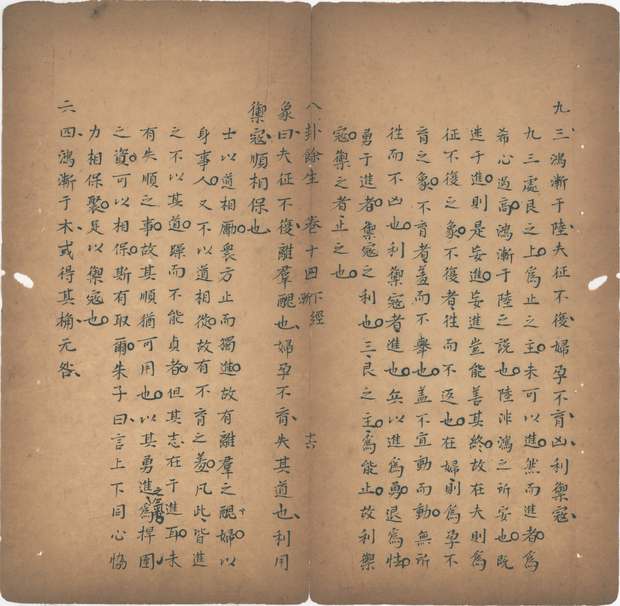 九三鴻漸于陸夫征不復婦孕不育凶利禦寇
九三處艮之上爲止之主未可以進然而進者爲
希心過高鴻漸于陸之說也陸非鴻之所安也旣
迷于進則是妄進妄進豈能善其終故在夫則爲
征不復之象不復者往而不返也在婦則爲孕不
育之象不育者蓋而不舉也蓋不宜動而動無所
往而不凶也利禦寇者進也兵以進爲勇退爲怯
勇于進者禦寇之利也三艮之主爲能止故利禦
寇禦之者止之也
八卦餘生 卷十四 下經 漸 十六
象曰夫征不復離羣醜也婦孕不育失其道也利用
禦寇順相保也
士以道相厲衆方止而獨進故有離羣之醜婦以
身事人又不以道相從故有不育之羞凡此皆進
之不以其道躁而不能貞者但其志在于進耳未
有失順之事故其順猶可用也以其勇進之氣爲捍圉
之資可以相保斯有取爾朱子曰言上下同心協
力相保聚足以禦寇也
六四鴻漸于木或得其桷无咎